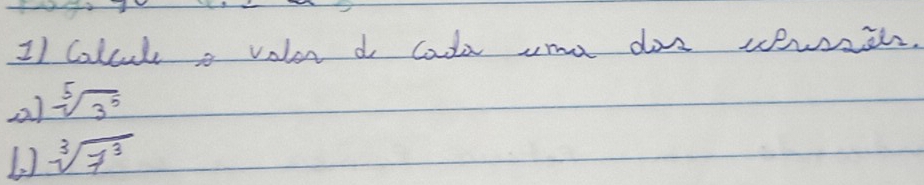 1) Calcule o valor de cada uma das expressões.
a) ⁵√3⁵
b) ³√7³